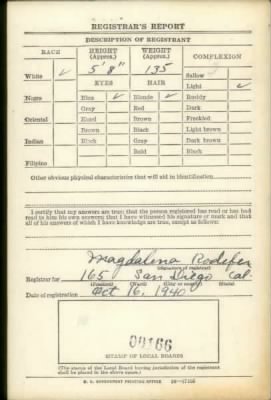 REGISTRAR'S REPORT
DESCRIPTION OF REGISTRANT
RACE HEIGHT (Approx.) WEIGHT (Approx.) COMPLEXION
5' 8" 135 Sallow
White ✓ EYES HAIR Light ✓
Negro Blue ✓ Blonde ✓ Ruddy
Gray Red Dark
Oriental Hazel Brown Freckled
Brown Black Light brown
Indian Black Gray Dark brown
Bald Black
Filipino
Other obvious physical characteristics that will aid in identification
I certify that my answers are true; that the person registered has read or has had
read to him his own answers; that I have witnessed his signature or mark and that
all of his answers of which I have knowledge are true, except as follows:
Magdalena Rodefer
(Signature of registrar)
Registrar for 165 San Diego Cal.
(Precinct) (Ward) (City or county) (State)
Date of registration Oct 16, 1940
09166
STAMP OF LOCAL BOARDS
(The stamp of the Local Board having jurisdiction of the registrant
shall be placed in the above space.)
U. S. GOVERNMENT PRINTING OFFICE 16—17105